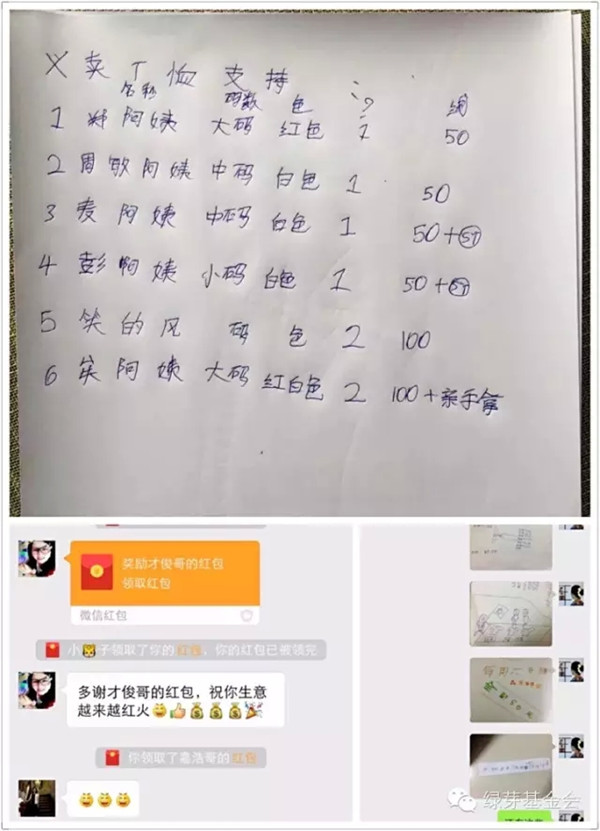 义卖T恤支持
名称 码数 色 ? 钱
1 郑阿姨 大码 红色 1 50
2 周敏阿姨 中码 白色 1 50
3 麦阿姨 中码 白色 1 50+
4 彭阿姨 小码 白色 1 50+
5 笑的风 码 色 2 100
6 阿姨 大码 红白色 2 100+亲手拿
奖励才俊哥的红包
领取红包
微信红包
小子领取了你的红包，你的红包已被领完
多谢才俊哥的红包，祝你生意
越来越红火
你领取了嘉浩哥的红包
绿芽基金会